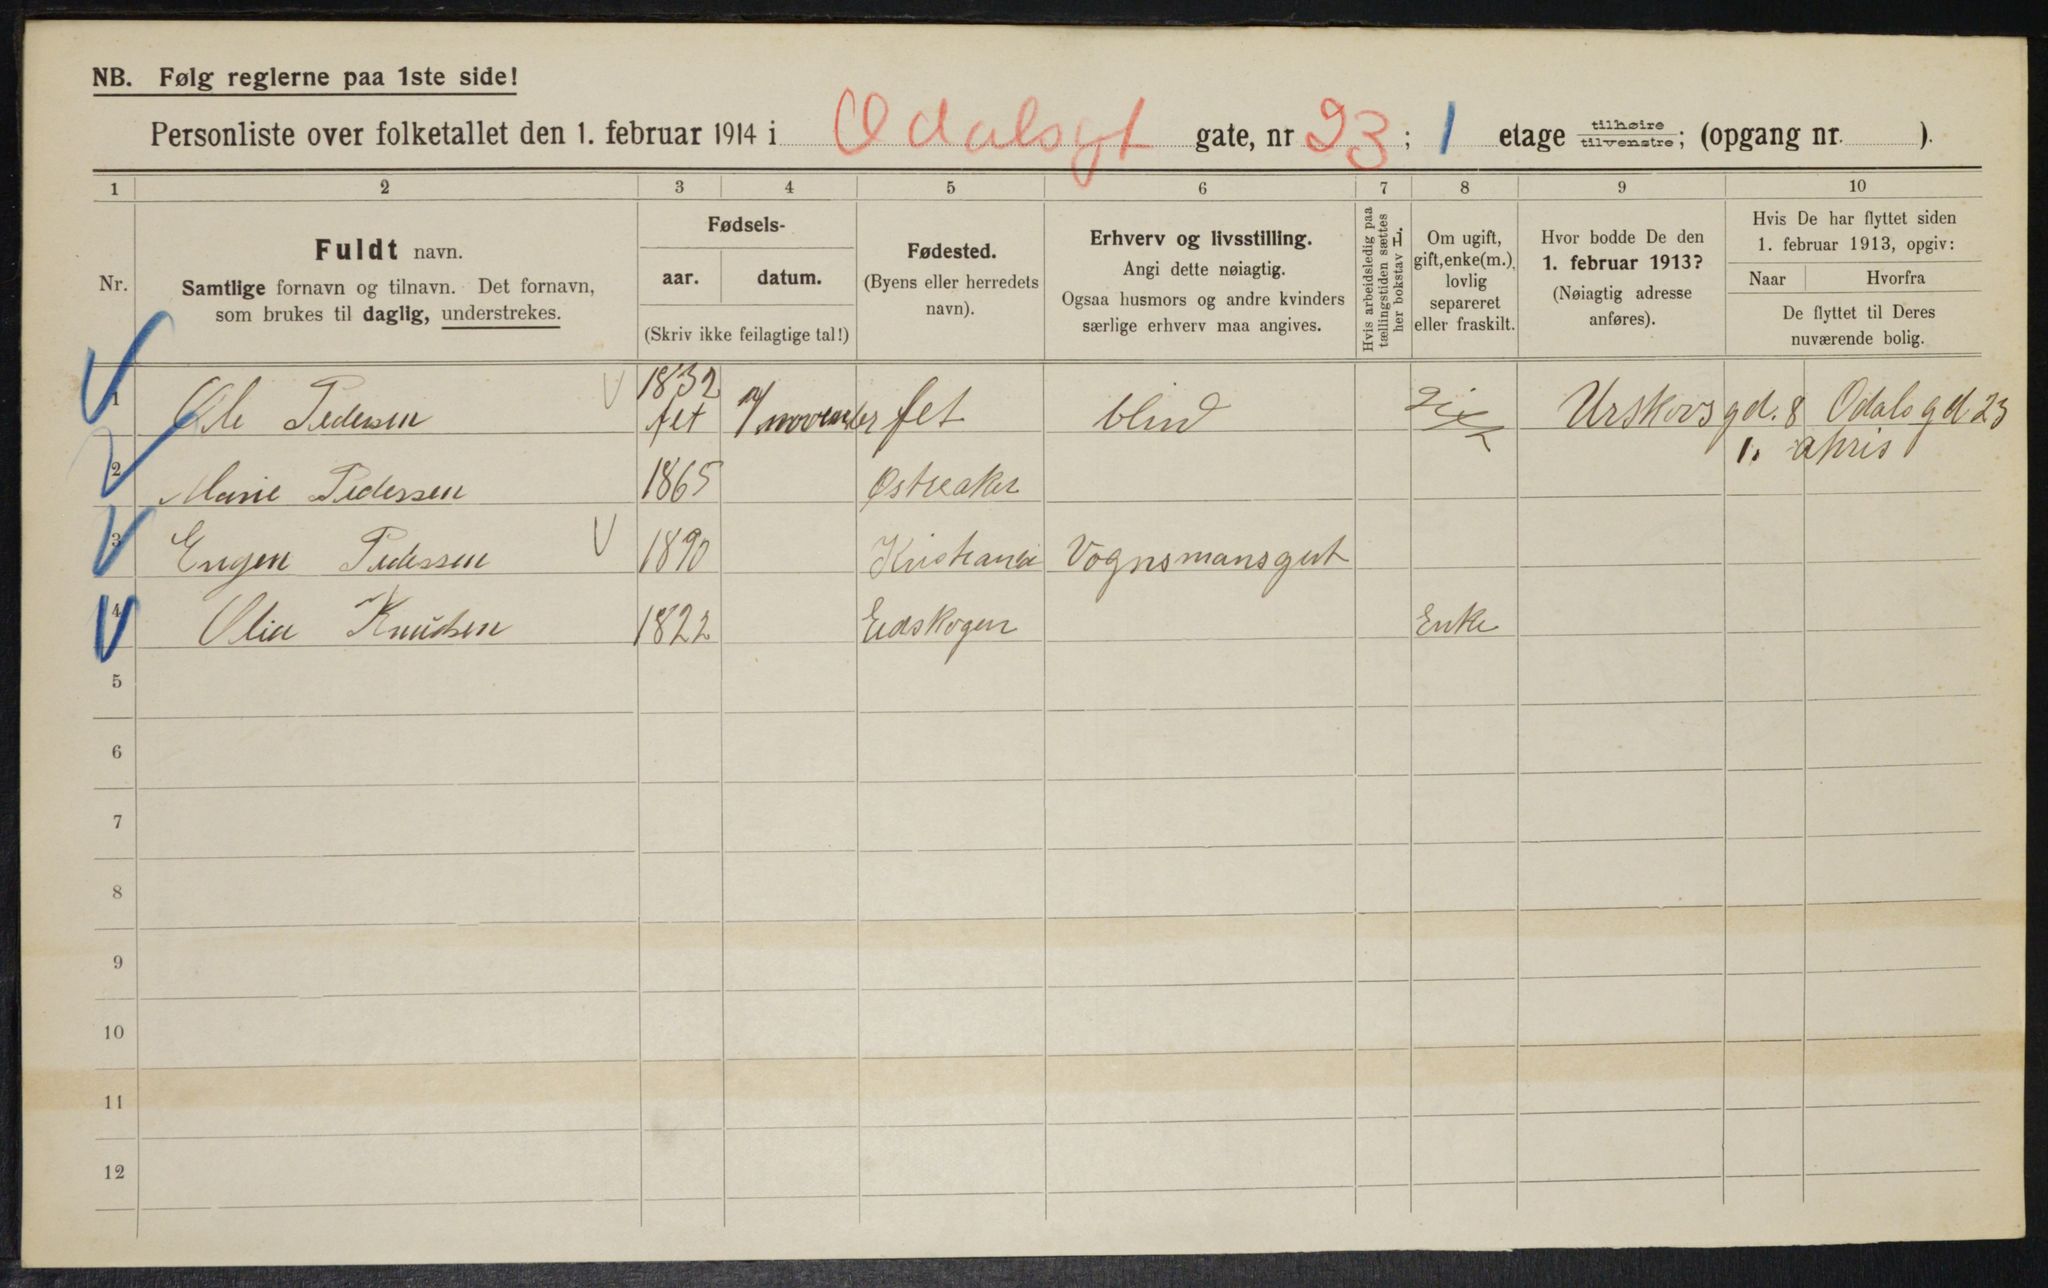 NB. Følg reglerne paa 1ste side!
Personliste over folketallet den 1. februar 1914 i Odalsgt gate, nr 23; 1 etage tilhøire tilvenstre; (opgang nr. ).
1 2 3 4 5 6 7 8 9 10
Nr.
Fuldt navn.
Samtlige fornavn og tilnavn. Det fornavn,
som brukes til daglig, understrekes.
Fødsels-
aar. datum.
(Skriv ikke feilagtige tal!)
Fødested.
(Byens eller herredets
navn).
Erhverv og livsstilling.
Angi dette nøiagtig.
Ogsaa husmors og andre kvinders
særlige erhverv maa angives.
Hvis arbeidsledig paa
tællingstiden sættes
her bokstav H.
Om ugift,
gift, enke(m.),
lovlig
separeret
eller fraskilt.
Hvor bodde De den
1. februar 1913?
(Nøiagtig adresse
anføres).
Hvis De har flyttet siden
1. februar 1913, opgiv:
Naar Hvorfra
De flyttet til Deres
nuværende bolig.
1 Ole Pedersen 1832 fet november fet blind Urskovsgd. 8 Odalsgd 23
1. april
2 Marie Pedersen 1865 Østreaker
3 Eugen Pedersen 1890 Kristiania Vognsmansgut
4 Olia Knudsen 1822 Eidskogen Enke
5
6
7
8
9
10
11
12